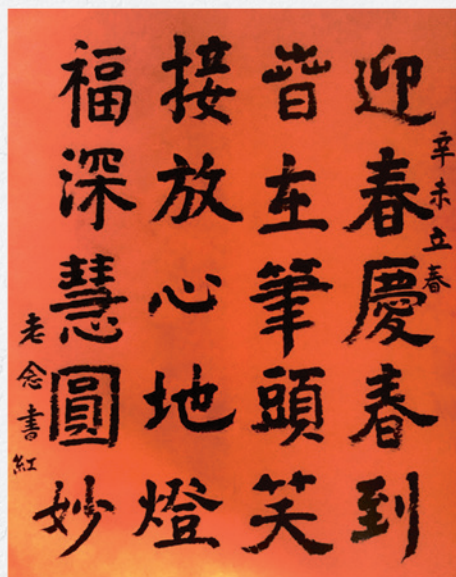 辛未立春
迎春慶春到
皆在筆頭笑
接放心地燈
福深慧圓妙
老念書紅